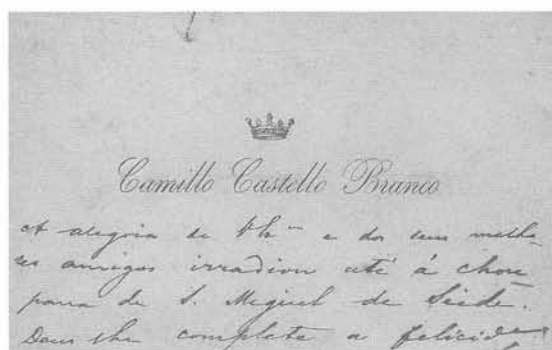 Camillo Castello Branco
A alegria de e dos seus melho-
res amigos irradiou até á chou
pana de S. Miguel de Seide.
Deus lhe complete a felicida